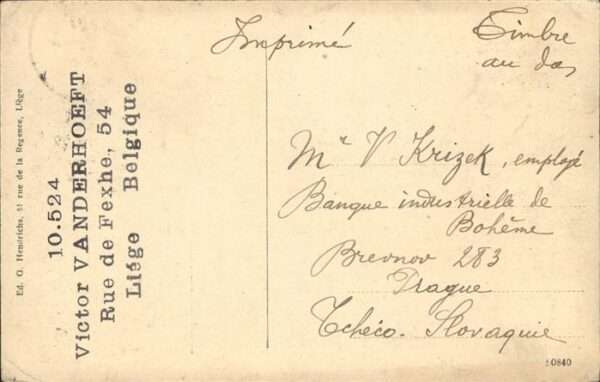 Imprimé
Timbre
au dos
Ed. G. Hendrichs, 51 rue de la Regence, Liège
10.524
Victor VANDERHOEFT
Rue de Fexhe, 54
Liége Belgique
Mr V Krizek, employé
Banque industrielle de
Bohême
Brevnov 283
Prague
Tchéco-Slovaquie
50840